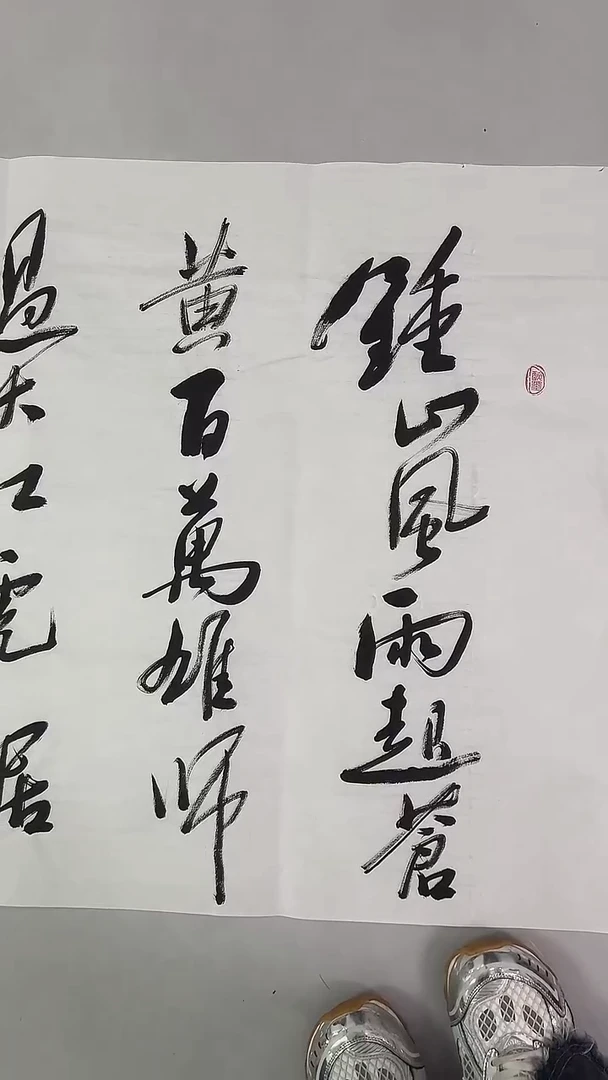 鍾山風雨起蒼
黄百萬雄师
過大江虎踞